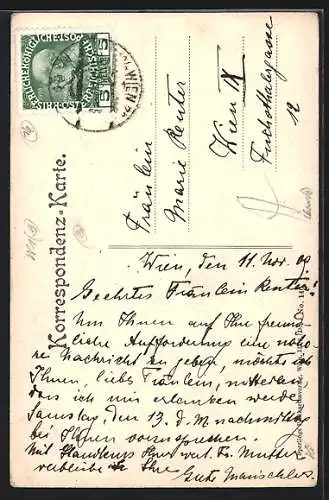 Korrespondenz-Karte.
Fräulein
Marie Renter
Wien IX
Fuchsthalergasse
12
Wien, den 11. Nov. 09
Geehrtes Fräulein Renter!
Um Ihnen auf Ihre freund-
liche Aufforderung eine nähe-
re Nachricht zu geben, möchte ich
Ihnen, liebes Fräulein, mitteilen,
dass ich mir erlauben werde,
Samstag, den 13. d. M nachmittag
bei Ihnen vorzusprechen.
Mit Handkuss Ihrer Mutter
verbleibe ich Ihre
WIEN
5